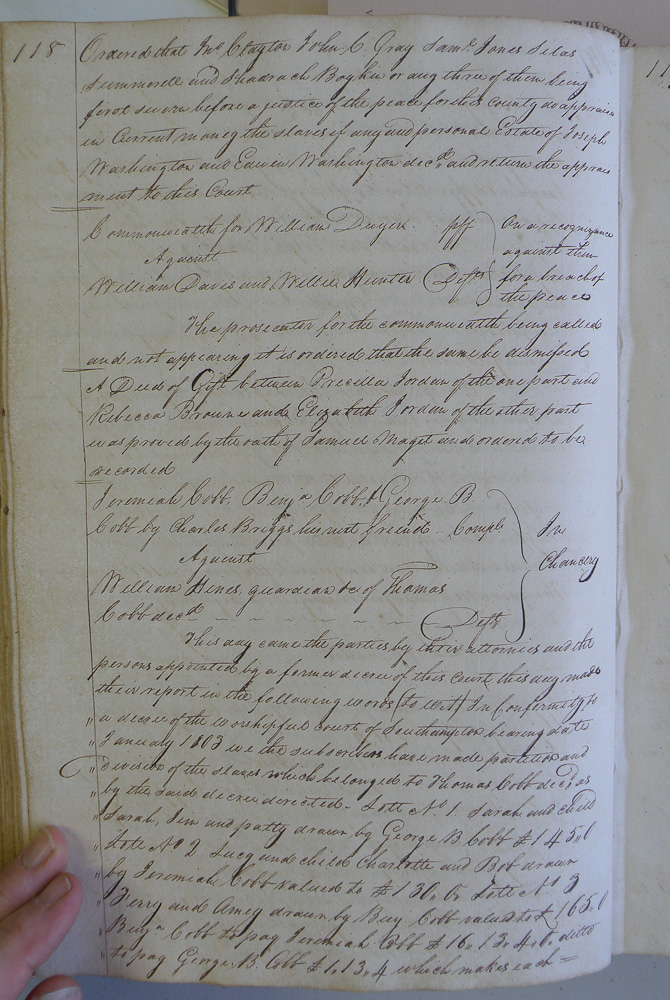 118
Ordered that Jno. Clayton John C. Gray Saml. Jones Silas
Summerell and Shadrach Boykin or any three of them being
first sworn before a justice of the peace for this County do apprais
in Current money the slaves if any and personal Estate of Joseph
Washington and Edwin Washington decd. and return the apprais
ment to this Court
Commonwealth for William Dwyer. plf On a recognizance
Against against them
William Davis and Willie Hunter Defts for a breach of
the peace
The prosecutor for the commonwealth being called
and not appearing it is ordered that the same be dismissed
A Deed of Gift between Precilla Jordan of the one part and
Rebecca Browne and Elizabeth Jordan of the other part
was proved by the oath of Samuel Maget and ordered to be
recorded
Jeremiah Cobb, Benja. Cobb, & George B
Cobb by Charles Briggs his next friend. Compls. In
Against Chancery
William Hines, guardian &c of Thomas
Cobb decd Defts
This day came the parties by their attornies and the
persons appointed by a former decree of this Court this day made
their report in the following words (to wit) In Conformity to
" a decree of the worshipful court of Southampton bearing date
" January 1803 we the subscribers have made partition and
" Division of the slaves which belonged to Thomas Cobb decd, as
" by the said decree directed - Lotte No. 1 Sarah and child
" Sarah, Jim and patty drawn by George B. Cobb £ 145,0
" Lotte No 2. Lucy and child Charlotte and Bob drawn
" by Jeremiah Cobb valued to £ 130,0, Lotte No 3
" Jerry and Amey drawn by Benj. Cobb valued to £ 165,0
" Benja. Cobb to pay Jeremiah Cobb £ 16,,13,,4,,0, ditto
" to pay George B. Cobb £ 1,,13,,4 which makes each =